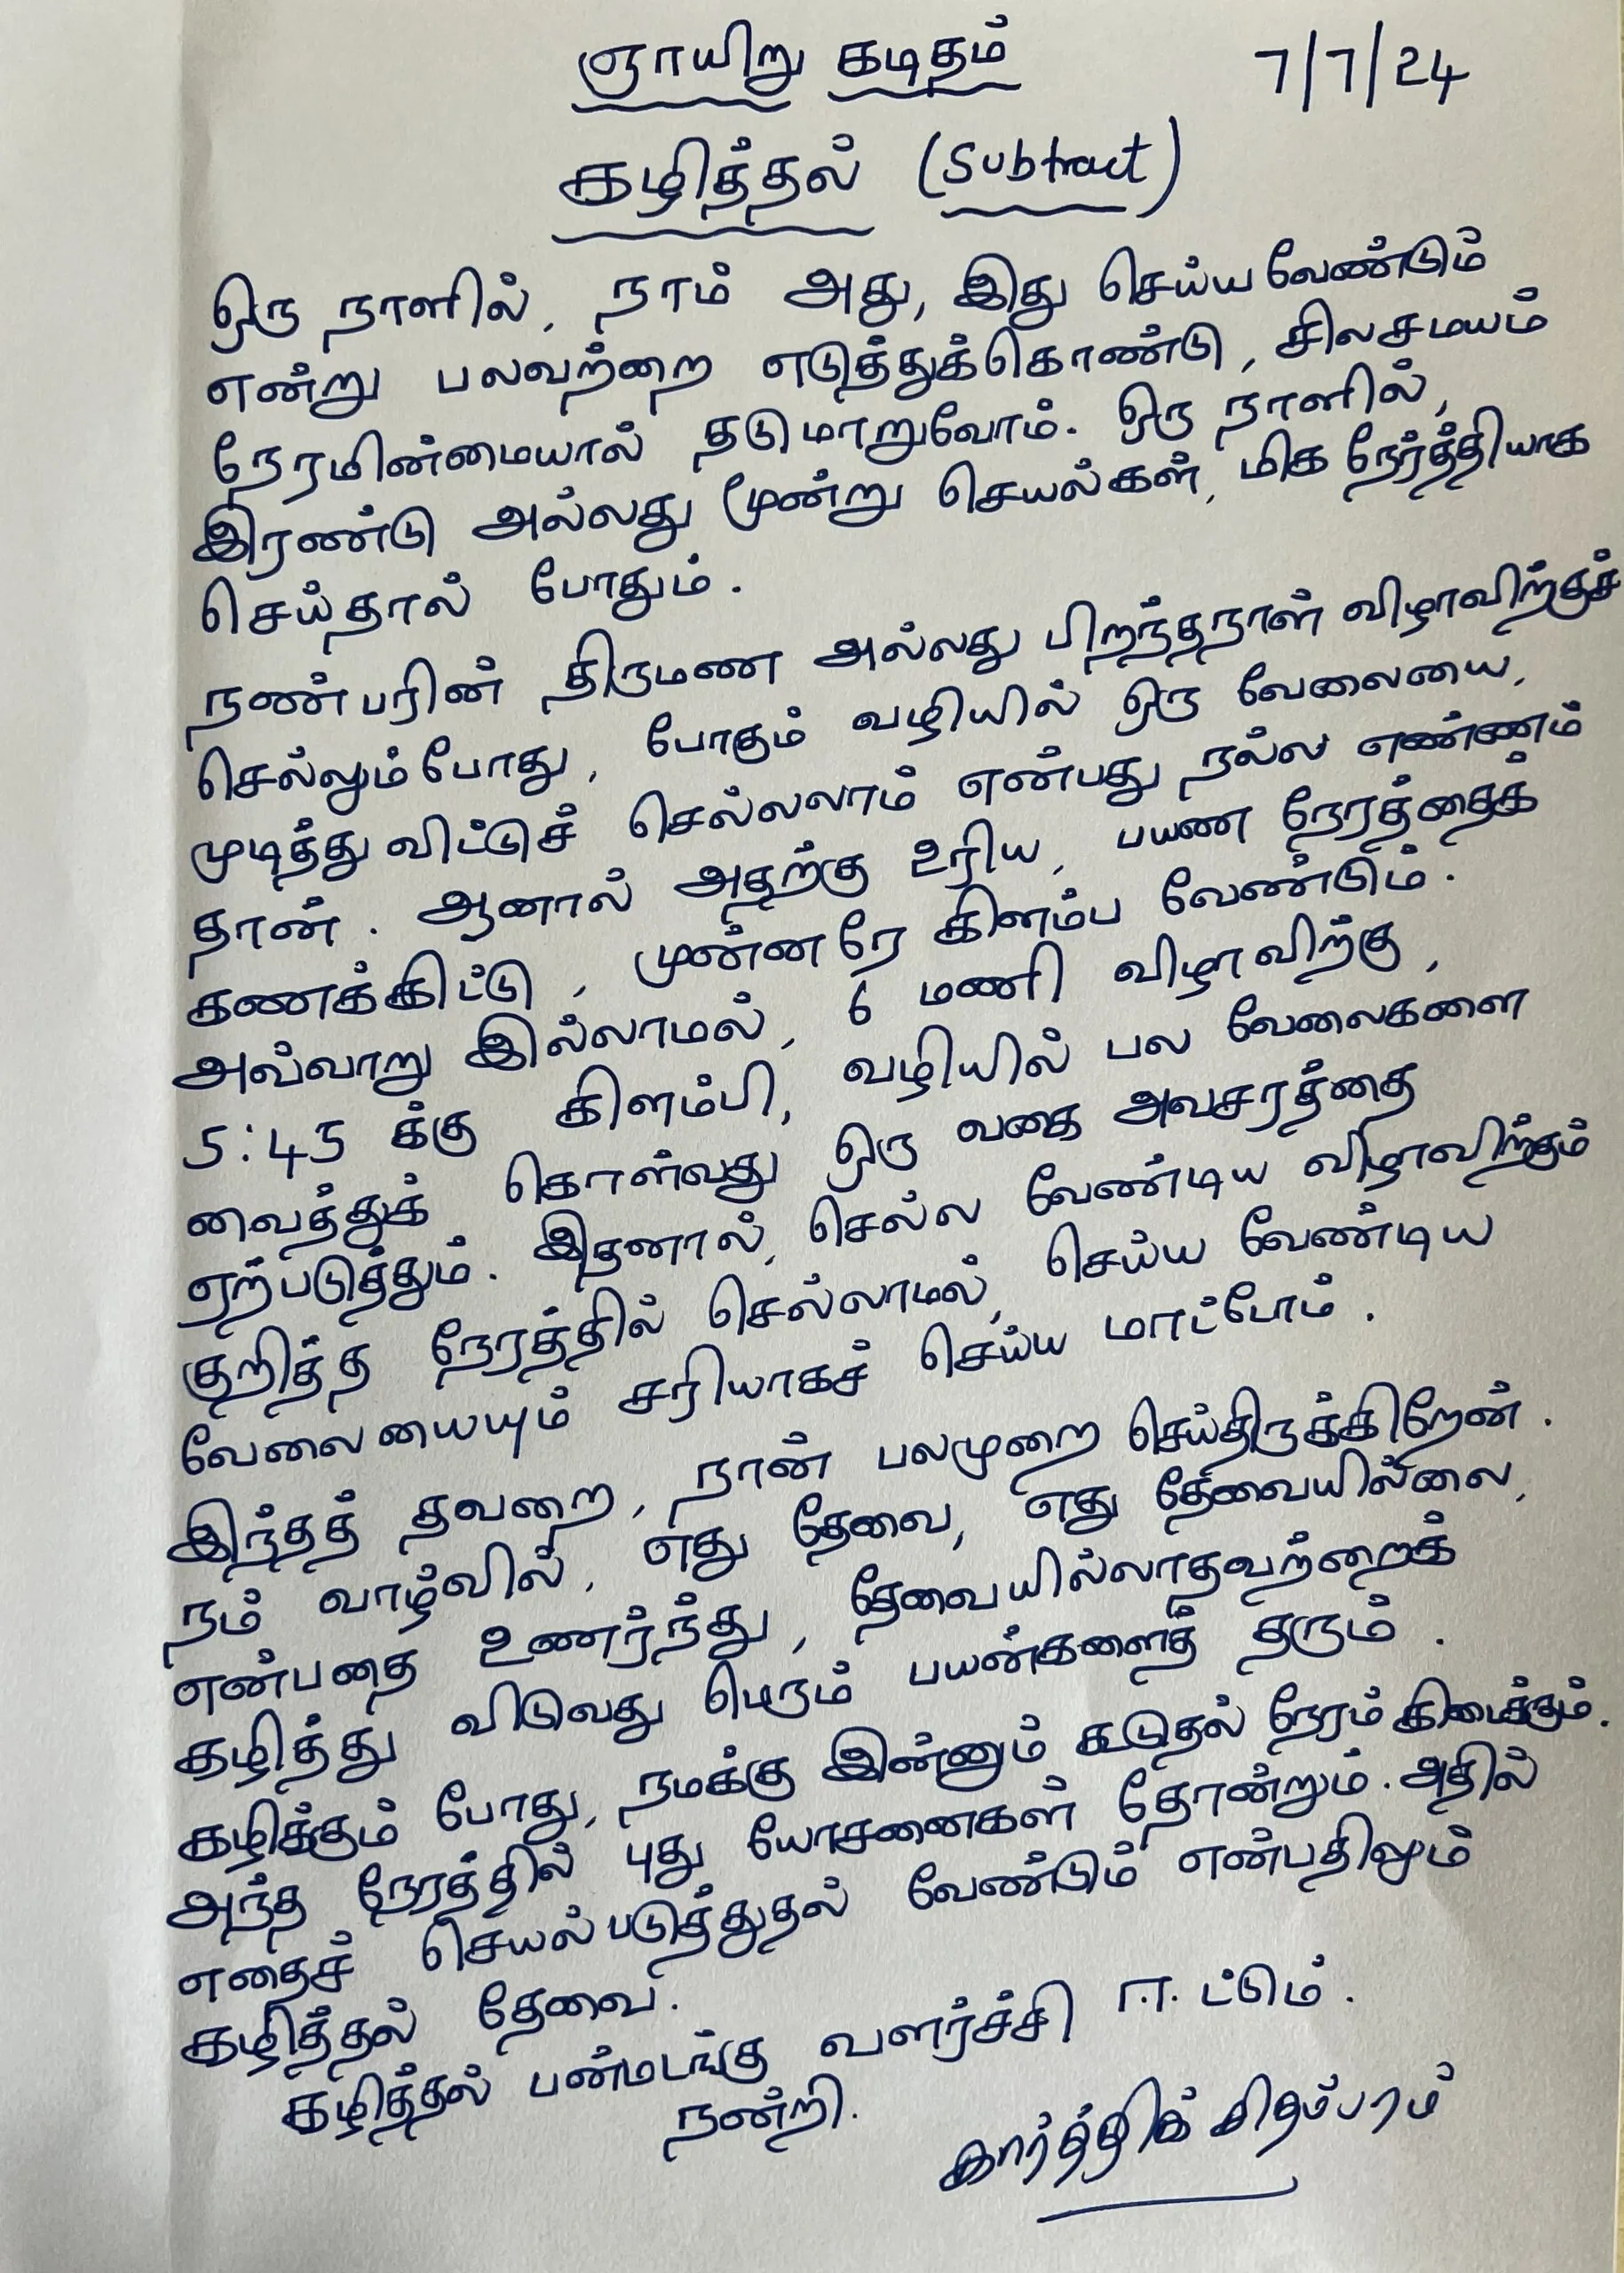 ஞாயிறு கடிதம் 7/7/24
கழித்தல் (Subtract)
ஒரு நாளில், நாம் அது, இது செய்ய வேண்டும்
என்று பலவற்றை எடுத்துக்கொண்டு, சிலசமயம்
நேரமின்மையால் தடுமாறுவோம். ஒரு நாளில்,
இரண்டு அல்லது மூன்று செயல்கள், மிக நேர்த்தியாக
செய்தால் போதும்.
நண்பரின் திருமண அல்லது பிறந்தநாள் விழாவிற்குச்
செல்லும்போது, போகும் வழியில் ஒரு வேலையை,
முடித்து விட்டுச் செல்லலாம் என்பது நல்ல எண்ணம்
தான். ஆனால் அதற்கு உரிய, பயண நேரத்தைக்
கணக்கிட்டு, முன்னரே கிளம்ப வேண்டும்.
அவ்வாறு இல்லாமல், 6 மணி விழாவிற்கு,
5:45 க்கு கிளம்பி, வழியில் பல வேலைகளை
வைத்துக் கொள்வது ஒரு வகை அவசரத்தை
ஏற்படுத்தும். இதனால், செல்ல வேண்டிய விழாவிற்கும்
குறித்த நேரத்தில் செல்லாமல், செய்ய வேண்டிய
வேலையையும் சரியாகச் செய்ய மாட்போம்.
இந்தத் தவறை, நான் பலமுறை செய்திருக்கிறேன்.
நம் வாழ்வில், எது தேவை, எது தேவையில்லை,
என்பதை உணர்ந்து, தேவையில்லாதவற்றைக்
கழித்து விடுவது பெரும் பயன்களைத் தரும்.
கழிக்கும் போது, நமக்கு இன்னும் கூடுதல் நேரம் கிடைக்கும்.
அந்த நேரத்தில் புது யோசனைகள் தோன்றும். அதில்
எதைச் செயல்படுத்துதல் வேண்டும் என்பதிலும்
கழித்தல் தேவை.
கழித்தல் பன்மடங்கு வளர்ச்சி ஈட்டும்.
நன்றி.
கார்த்திக் சிதம்பரம்